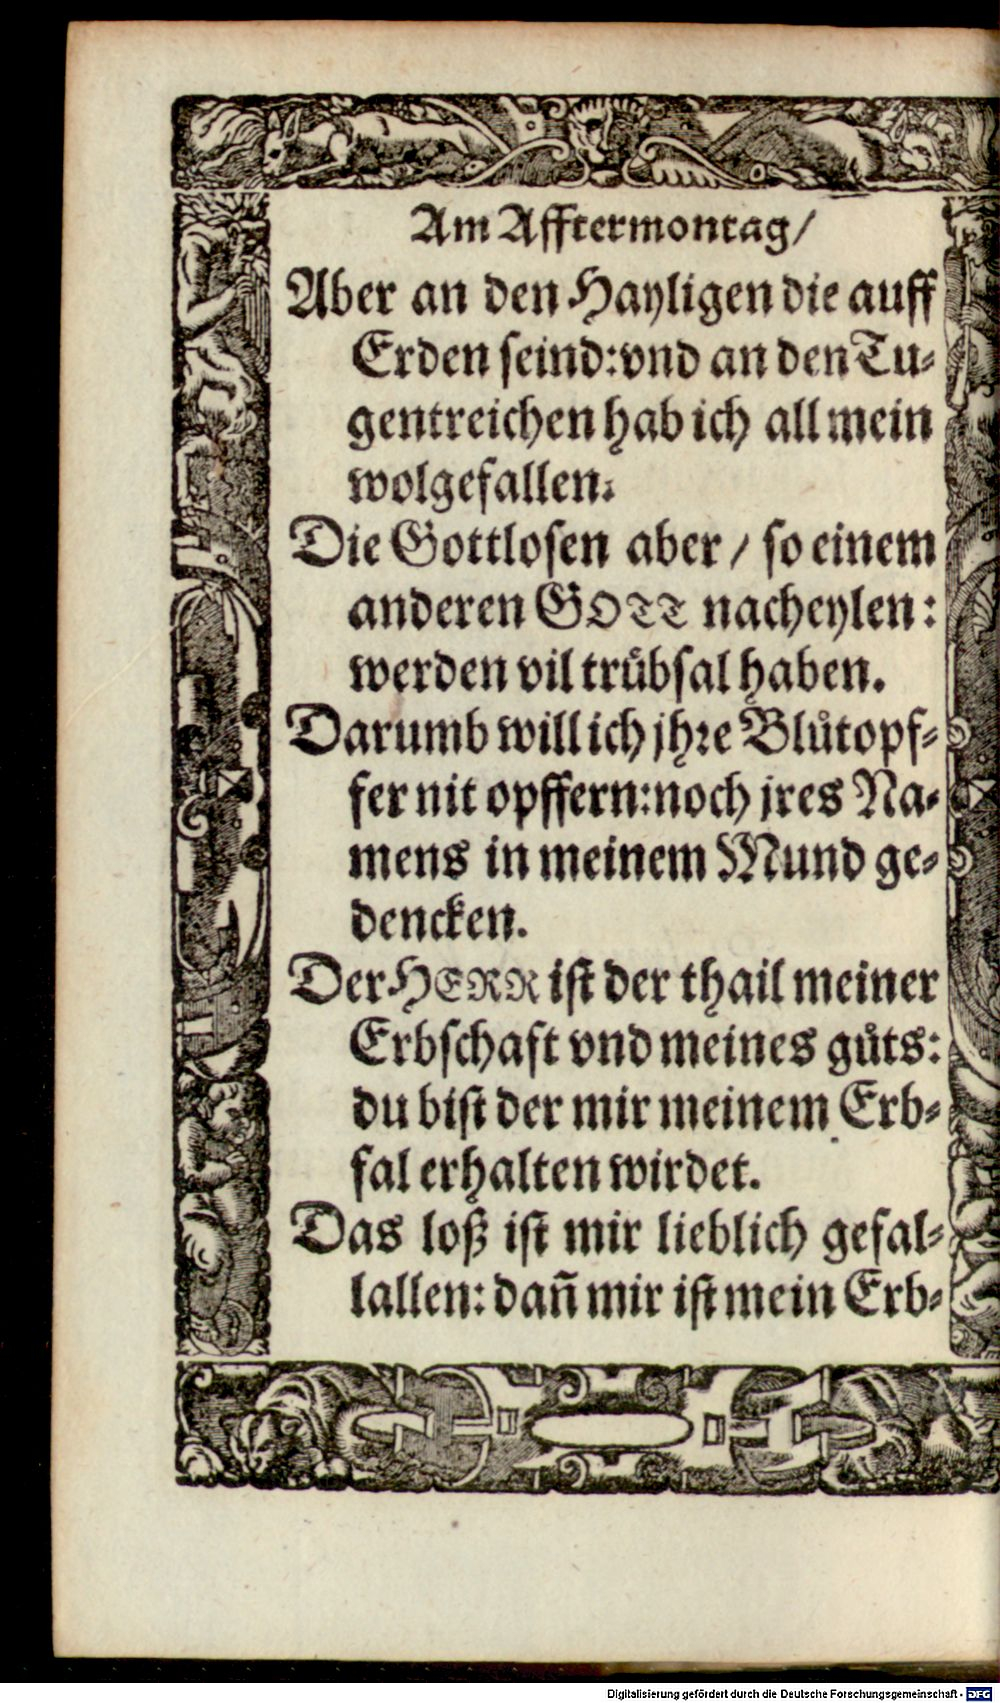 Am Afftermontag/
Aber an den Hayligen die auff
Erden seind: vnd an den Tu-
gentreichen hab ich all mein
wolgefallen.
Die Gottlosen aber / so einem
anderen GOTT nacheylen:
werden vil trůbsal haben.
Darumb will ich jhre Blůtopf-
fer nit opffern: noch jres Na-
mens in meinem Mund ge-
dencken.
Der HERR ist der thail meiner
Erbschaft vnd meines gůts:
du bist der mir meinem Erb-
fal erhalten wirdet.
Das loß ist mir lieblich gefal-
lallen: dañ mir ist mein Erb-
Digitalisierung gefördert durch die Deutsche Forschungsgemeinschaft - DFG